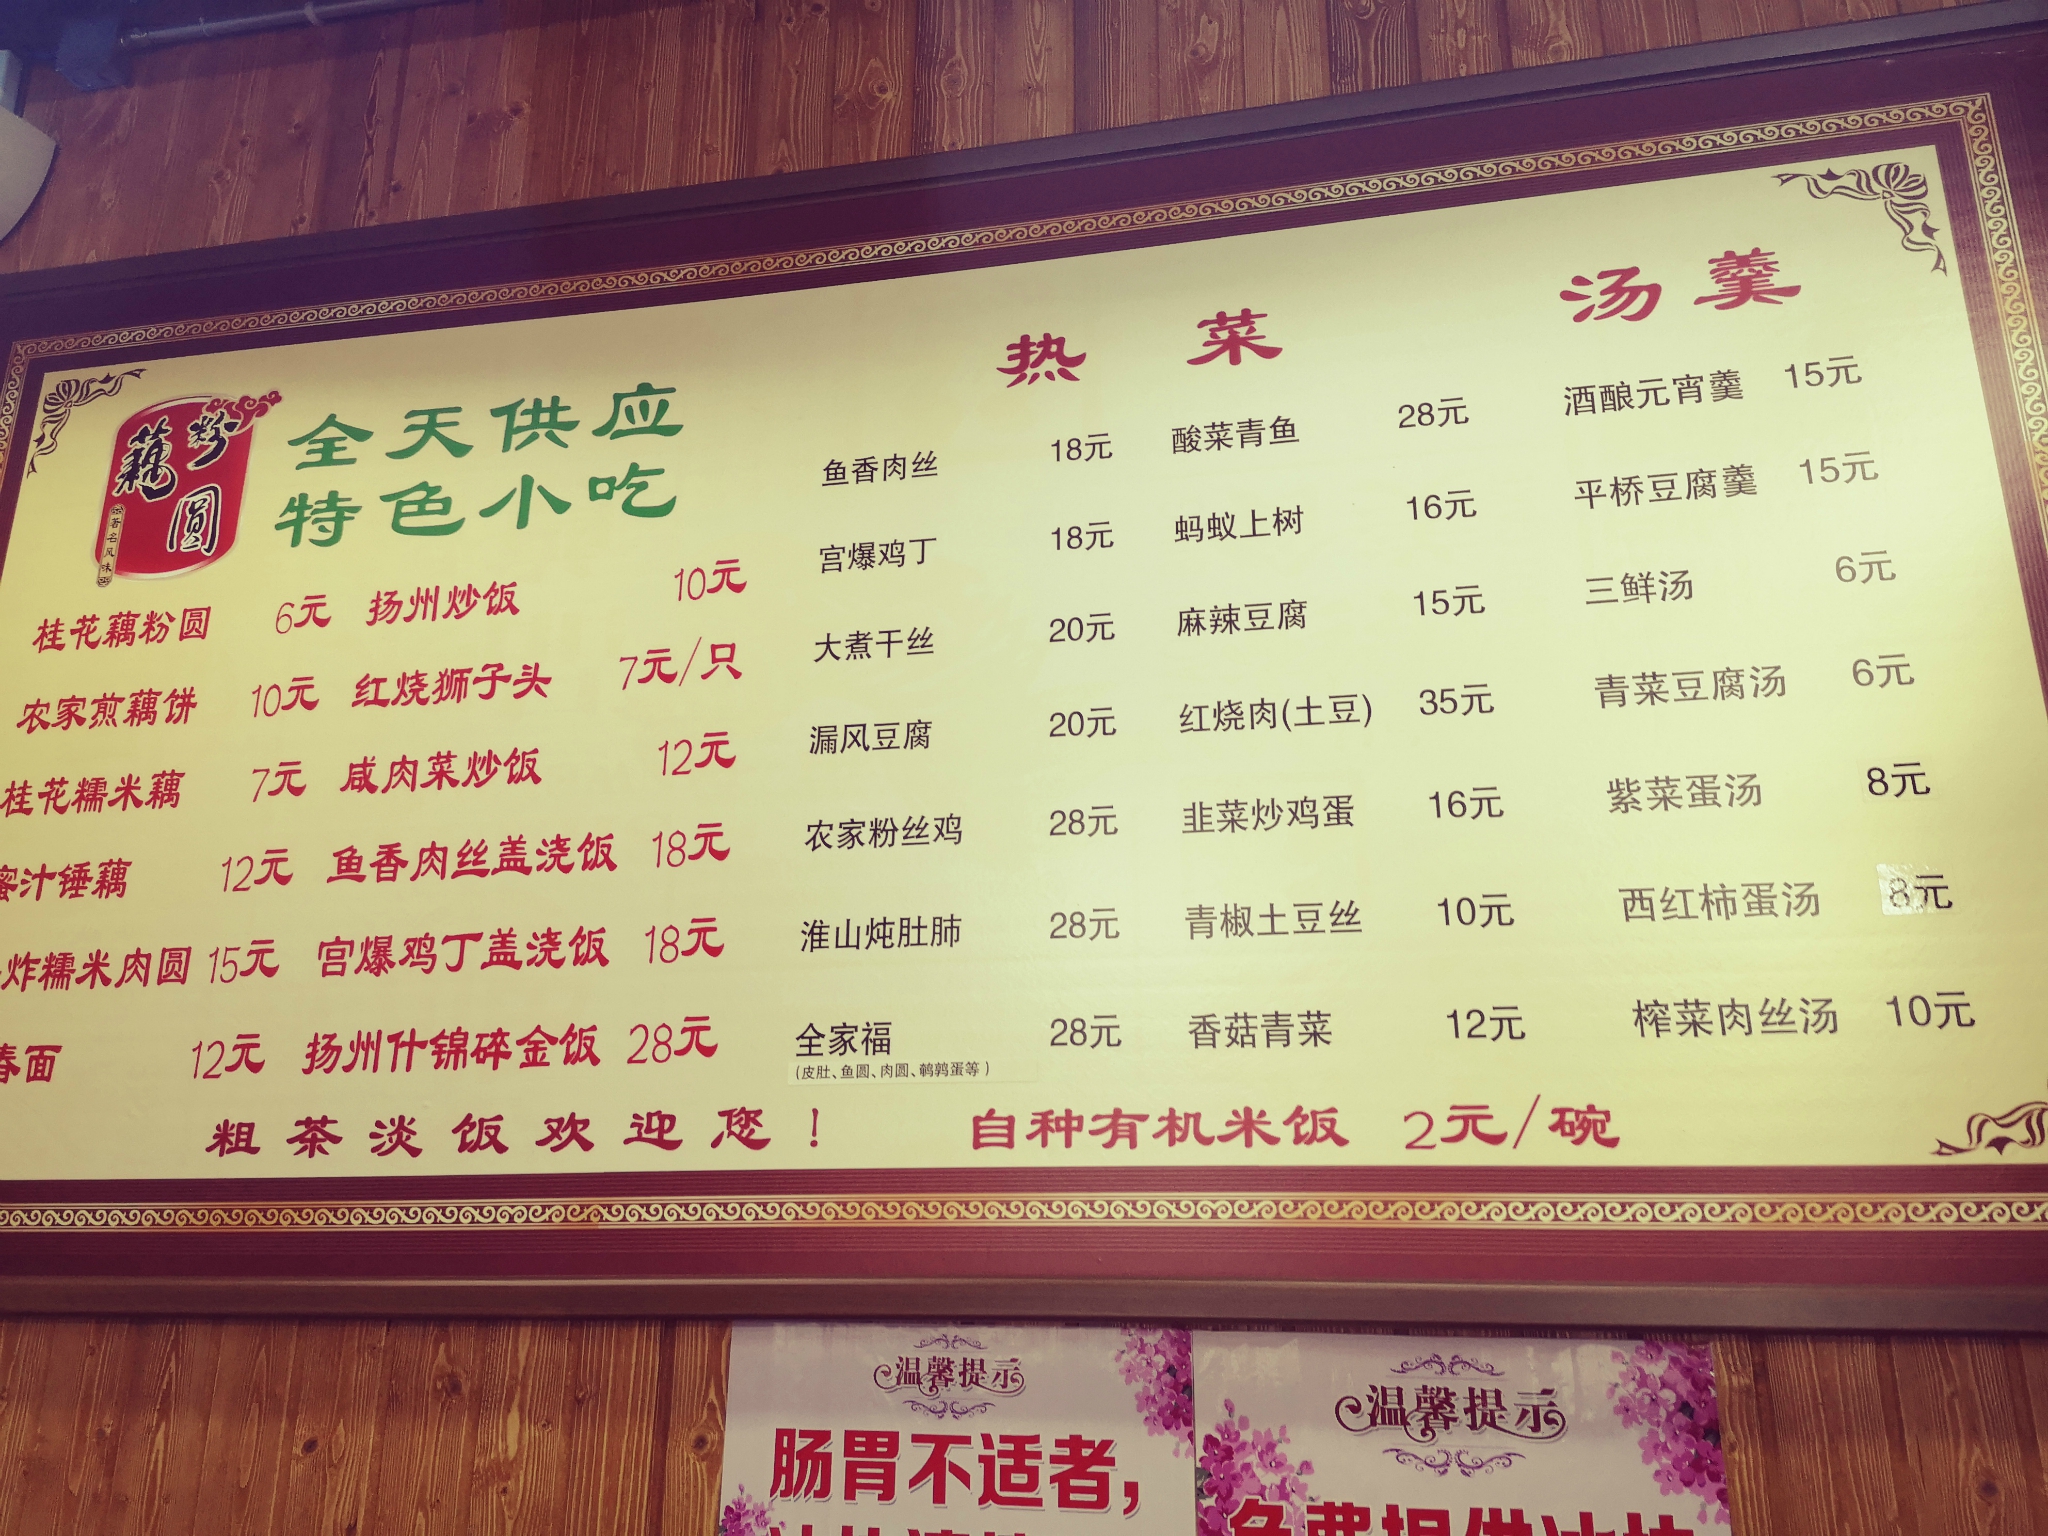 藕粉圆
著名风味
全天供应
特色小吃
桂花藕粉圆 6元 扬州炒饭 10元
农家煎藕饼 10元 红烧狮子头 7元/只
桂花糯米藕 7元 咸肉菜炒饭 12元
蜜汁锤藕 12元 鱼香肉丝盖浇饭 18元
炸糯米肉圆 15元 宫爆鸡丁盖浇饭 18元
春面 12元 扬州什锦碎金饭 28元
热菜
鱼香肉丝 18元 酸菜青鱼 28元
宫爆鸡丁 18元 蚂蚁上树 16元
大煮干丝 20元 麻辣豆腐 15元
漏风豆腐 20元 红烧肉(土豆) 35元
农家粉丝鸡 28元 韭菜炒鸡蛋 16元
淮山炖肚肺 28元 青椒土豆丝 10元
全家福 28元 香菇青菜 12元
(皮肚、鱼圆、肉圆、鹌鹑蛋等)
汤羹
酒酿元宵羹 15元
平桥豆腐羹 15元
三鲜汤 6元
青菜豆腐汤 6元
紫菜蛋汤 8元
西红柿蛋汤 8元
榨菜肉丝汤 10元
粗茶淡饭欢迎您！ 自种有机米饭 2元/碗
温馨提示
肠胃不适者，
温馨提示
免费提供